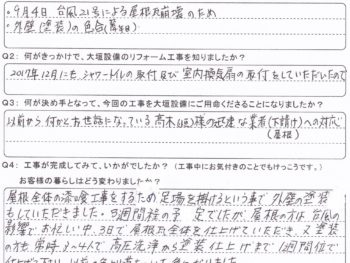 ・9月4日 台風21号による屋根瓦崩壊のため
・外壁(塗装)の色合
Q2: 何がきっかけで、大垣設備のリフォーム工事を知りましたか?
2017年12月にも シャワートイレの取付 及び 室内換気扇の取付をしていただいたので
Q3: 何が決め手となって、今回の工事を大垣設備にご用命くださることになりましたか?
以前から何かとお世話になっている高木(正)様の迅速な業者(下請け)への対応
(屋根)
Q4: 工事が完成してみて、いかがでしたか?(工事中にお気付きのことでもけっこうです。)
お客様の暮らしはどう変わりましたか?
屋根全体の漆喰工事をするため 足場を掛けるという事で 外壁の塗装
もしていただきました。2週間程の予定でしたが、屋根の方は、台風の
影響でお忙しい中、3日で屋根瓦全体を仕上げていただき、又、塗装
の方も 常時 3〜4人で 高圧洗浄から塗装仕上げまで 1週間位で